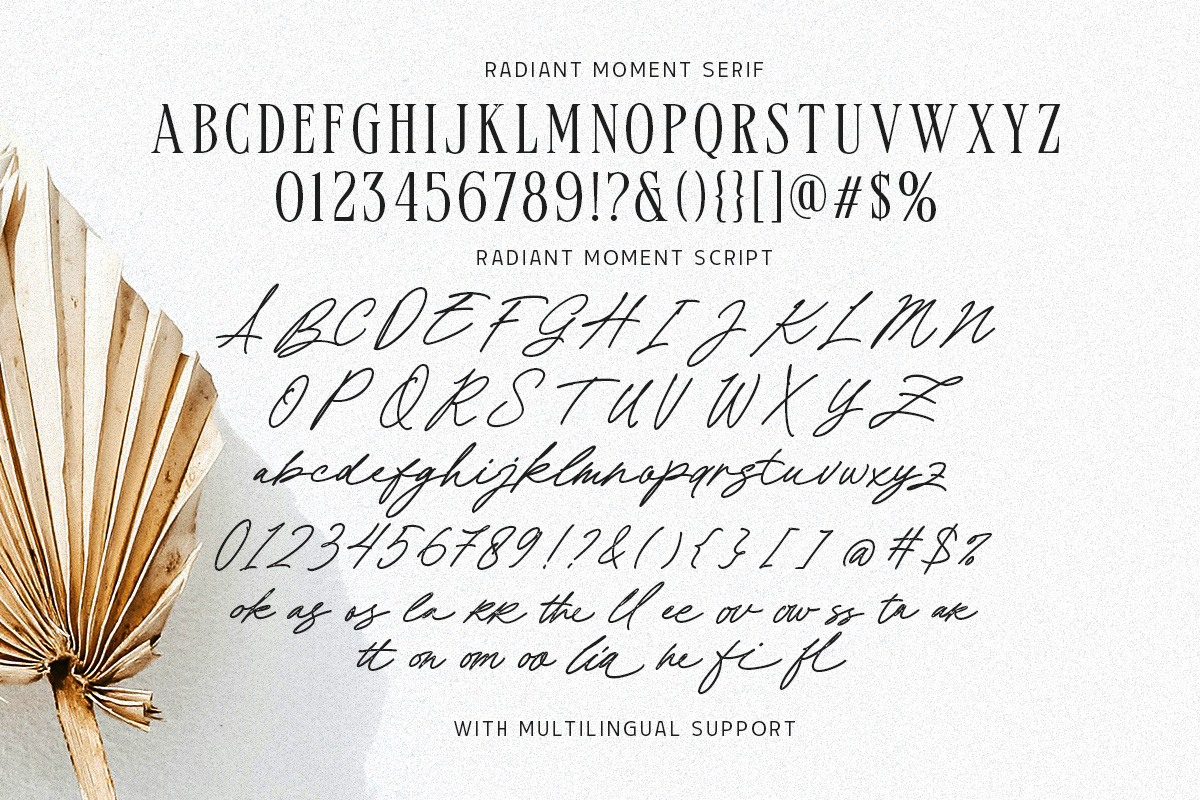 RADIANT MOMENT SERIF
ABCDEFGHIJKLMNOPQRSTUVWXYZ
0123456789!?&(){}[]@#$%
RADIANT MOMENT SCRIPT
A B C D E F G H I J K L M N
O P Q R S T U V W X Y Z
abcdefghijklmnopqrstuvwxyz
0123456789!?&(){}[]@#$%
ok as os la RR the ll ee ov ow ss ta ak
tt on om oo lia he fi fl
WITH MULTILINGUAL SUPPORT